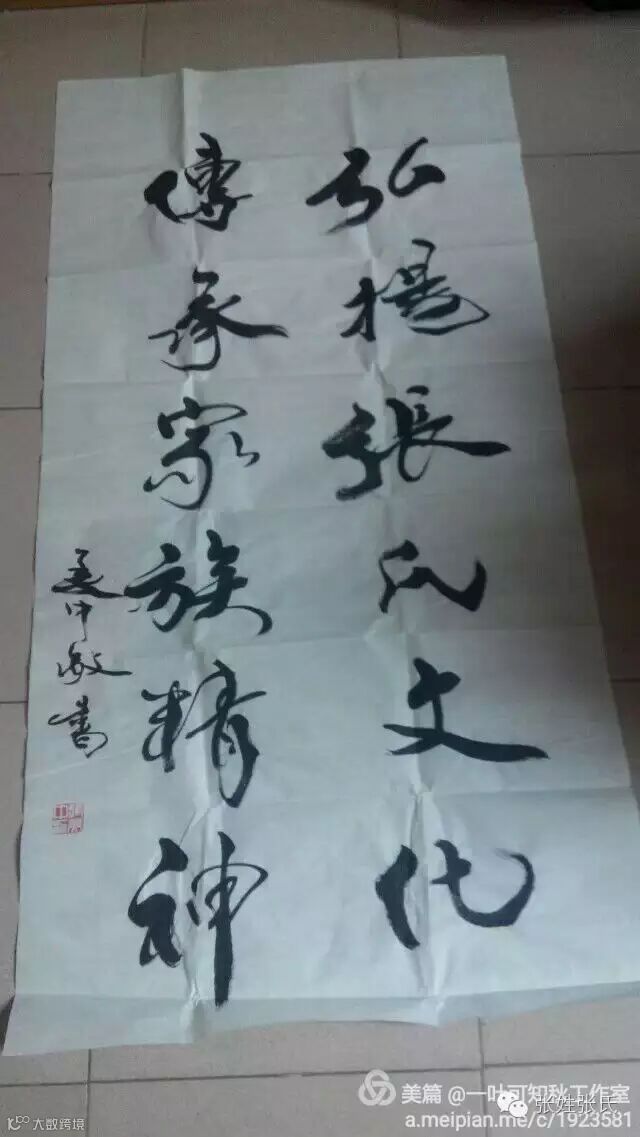 弘揚張氏文化
傳承家族精神
中敏書
美篇 @一叶可知秋工作室
张姓张氏
a.meipian.me/c/1923581
大数跨境